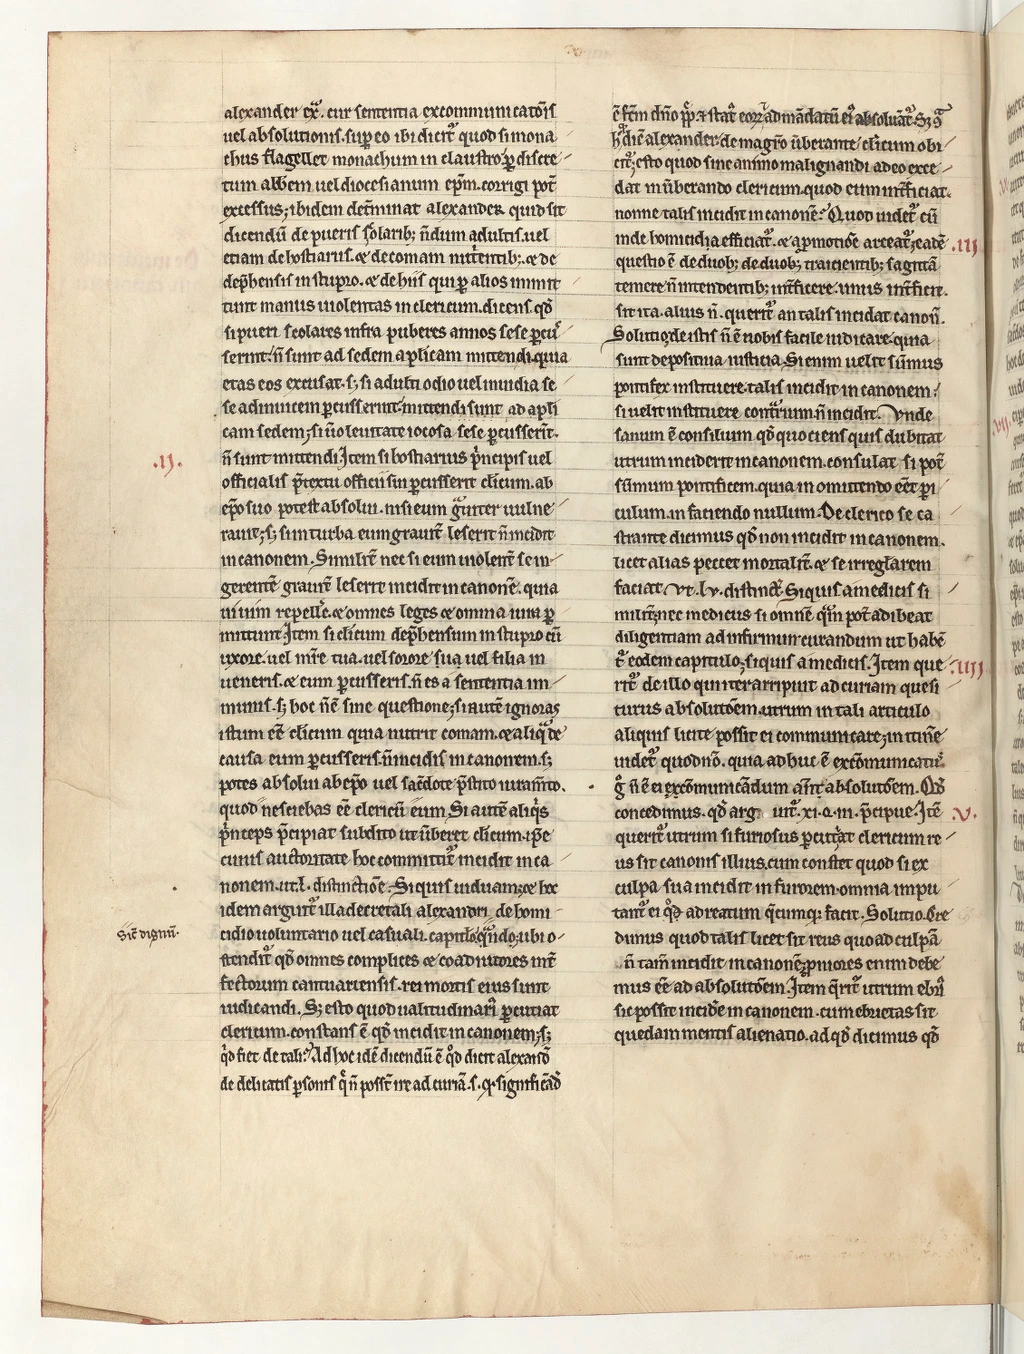 alexander ex̄. cur sententia excommunicatōis
uel absolutionis. sup eo ibi dicit̄ quod si mona
chus flagellet monachum in claustro p̄ discre
tum abb̄em uel diocesianum ep̄m. corrigi pot̄
excessus; ibidem det̄minat alexander quid sit
dicendū de pueris scolarib; n̄dum adultis. uel
etiam de hostiariis. & de comam nut̄rentib;. & de
dep̄hensis in stupro. & de hiis qui p alios inmit
tunt manus uiolentas in clericum. dicens. qd̄
si pueri scolares infra puberes annos sese pcus̄
serint. n̄ sunt ad sedem aplicam mittendi. quia
etas eos excusat. s; si adulti odio uel inuidia se
se adinuicem pcusserint. mittendi sunt ad apli
cam sedem; si ū leuitate iocosa sese pcusserīt.
n̄ sunt mittendi Item si hostiarius p̄ncipis uel
officialis p̄textu officii sui pcusserit cl̄icum. ab
ep̄o suo potest absolui. nisi eum gͣuiter uulne
rauit; s; si in turba eum grauit̄ leserit n̄ incidit
in canonem. Similit̄ nec si eum uiolent̄ se in
gerentē grauit̄ leserit incidit in canonē. quia
uim ui repelle̅. & omnes leges & omnia iura p
mittunt Item si cl̄icum dep̄hensum in stupro cū
uxore. uel mr̄e tua. uel sorore sua uel filia in
ueneris. & eum pcusseris. n̄ es a sententia im
munis. s; hoc n̄ ē sine questione; si autē ignoras
istum eē cl̄icum quia nutrit comam. & aliqͣ de
causa eum pcusseris. n̄ incidis in canonem. s;
potes absolui ab ep̄o uel sac̄dote p̄stito iuram̄to.
quod nesciebas eē clericū eum Si autē aliqͥs
p̄nceps p̄cipiat subdito ut ūberet cl̄icum. ip̄e
cuius auctoritate hoc committit̄ incidit in ca
nonem. ut. l. distinctiōe. Si quis uiduam; & hoc
idem arguit̄ illa decretali alexandri de homi
cidio uoluntario uel casuali. capitlo qͣndo; ubi o
stendit̄ qd̄ omnes complices & coadiutores int̄
fectorum cantuariensis. rei mortis eius sunt
iudicandi. S; esto quod ualitudinari pcutiat
clericum. constans ē qd̄ incidit in canonem; s;
qͥd fiet de tali? Ad hoc idē dicendū ē qd̄ dicit alexand̄
de delicatis psonis qͥ n̄ possūt ire ad curiā. s. q̄. significād̄
Sic̄ dignū.
.II.
n̄ sic dicit alexander de magr̄o ūberante cl̄icum obi
cit̄; esto quod sine animo malignandi adeo exce
dat in ūberando clericum. quod eum int̄ficiat.
nonne talis incidit in canonē? Quod uidet̄ cū
inde homicidia efficiat̄. & a pmotiōe arceat̄; eadē
.III.
questio ē de duob; de duob; traicientib; sagittā
temere n̄ intendentib; int̄ficere. unus int̄ficit.
sit ita. alius n̄. querit̄ an talis incidat canoñ.
Solutio; de istis n̄ ē nobis facile iudicare. quia
sunt de positiua iusticia. Si enim uelit sūmus
pontifex instituere. talis incidit in canonem;
si uelit instituere contͣrium. n̄ incidit. Vnde
sanum ē consilium qd̄ quociens quis dubitat
utrum inciderit in canonem. consulat si pot̄
sūmum pontificem. quia in omittendo eēt pi
culum. in faciendo nullum. De clerico se ca
strante dicimus qd̄ non incidit in canonem.
licet alias peccet mortalit̄. & se irregl̄arem
faciat. Vt. lv. distinct̄. Si quis a medicis si
milit̄; nec medicus si omnē qͣm pot̄ adibeat
diligentiam ad infirmum curandum ut habē
t̄ eodem capitulo; si quis a medicis. Item que
.IIII.
rit̄ de illo qui iter arripuit ad curiam quesi
turus absolutōem. utrum in tali articulo
aliquis licite possit ei communicare; in itinē
uidet̄ quod nō. quia adhuc ē excōmunicatus̄.
gͦ n̄ ē ei excōmunicādum an̄t absolutōem. Qd̄
concedimus. qd̄ arg uīt. xi. q. iii. p̄cipue. Itē
.V.
querit̄ utrum si furiosus pcutiat clericum re
us sit canonis illius. cum constet quod si ex
culpa sua incidit in furorem. omnia inpu
tant̄ ei qͦd ad reatum qͥcumq; facit. Solutio. Cre
dimus quod talis licet sit reus quo ad culpā
n̄ tam̄ incidit in canonē; pniores enim debe
mus eē ad absolutōem. Item qͥrit̄ utrum ebri
sic possit incidē in canonem. cum ebrietas sit
quedam mentis alienatio. ad qd̄ dicimus qd̄